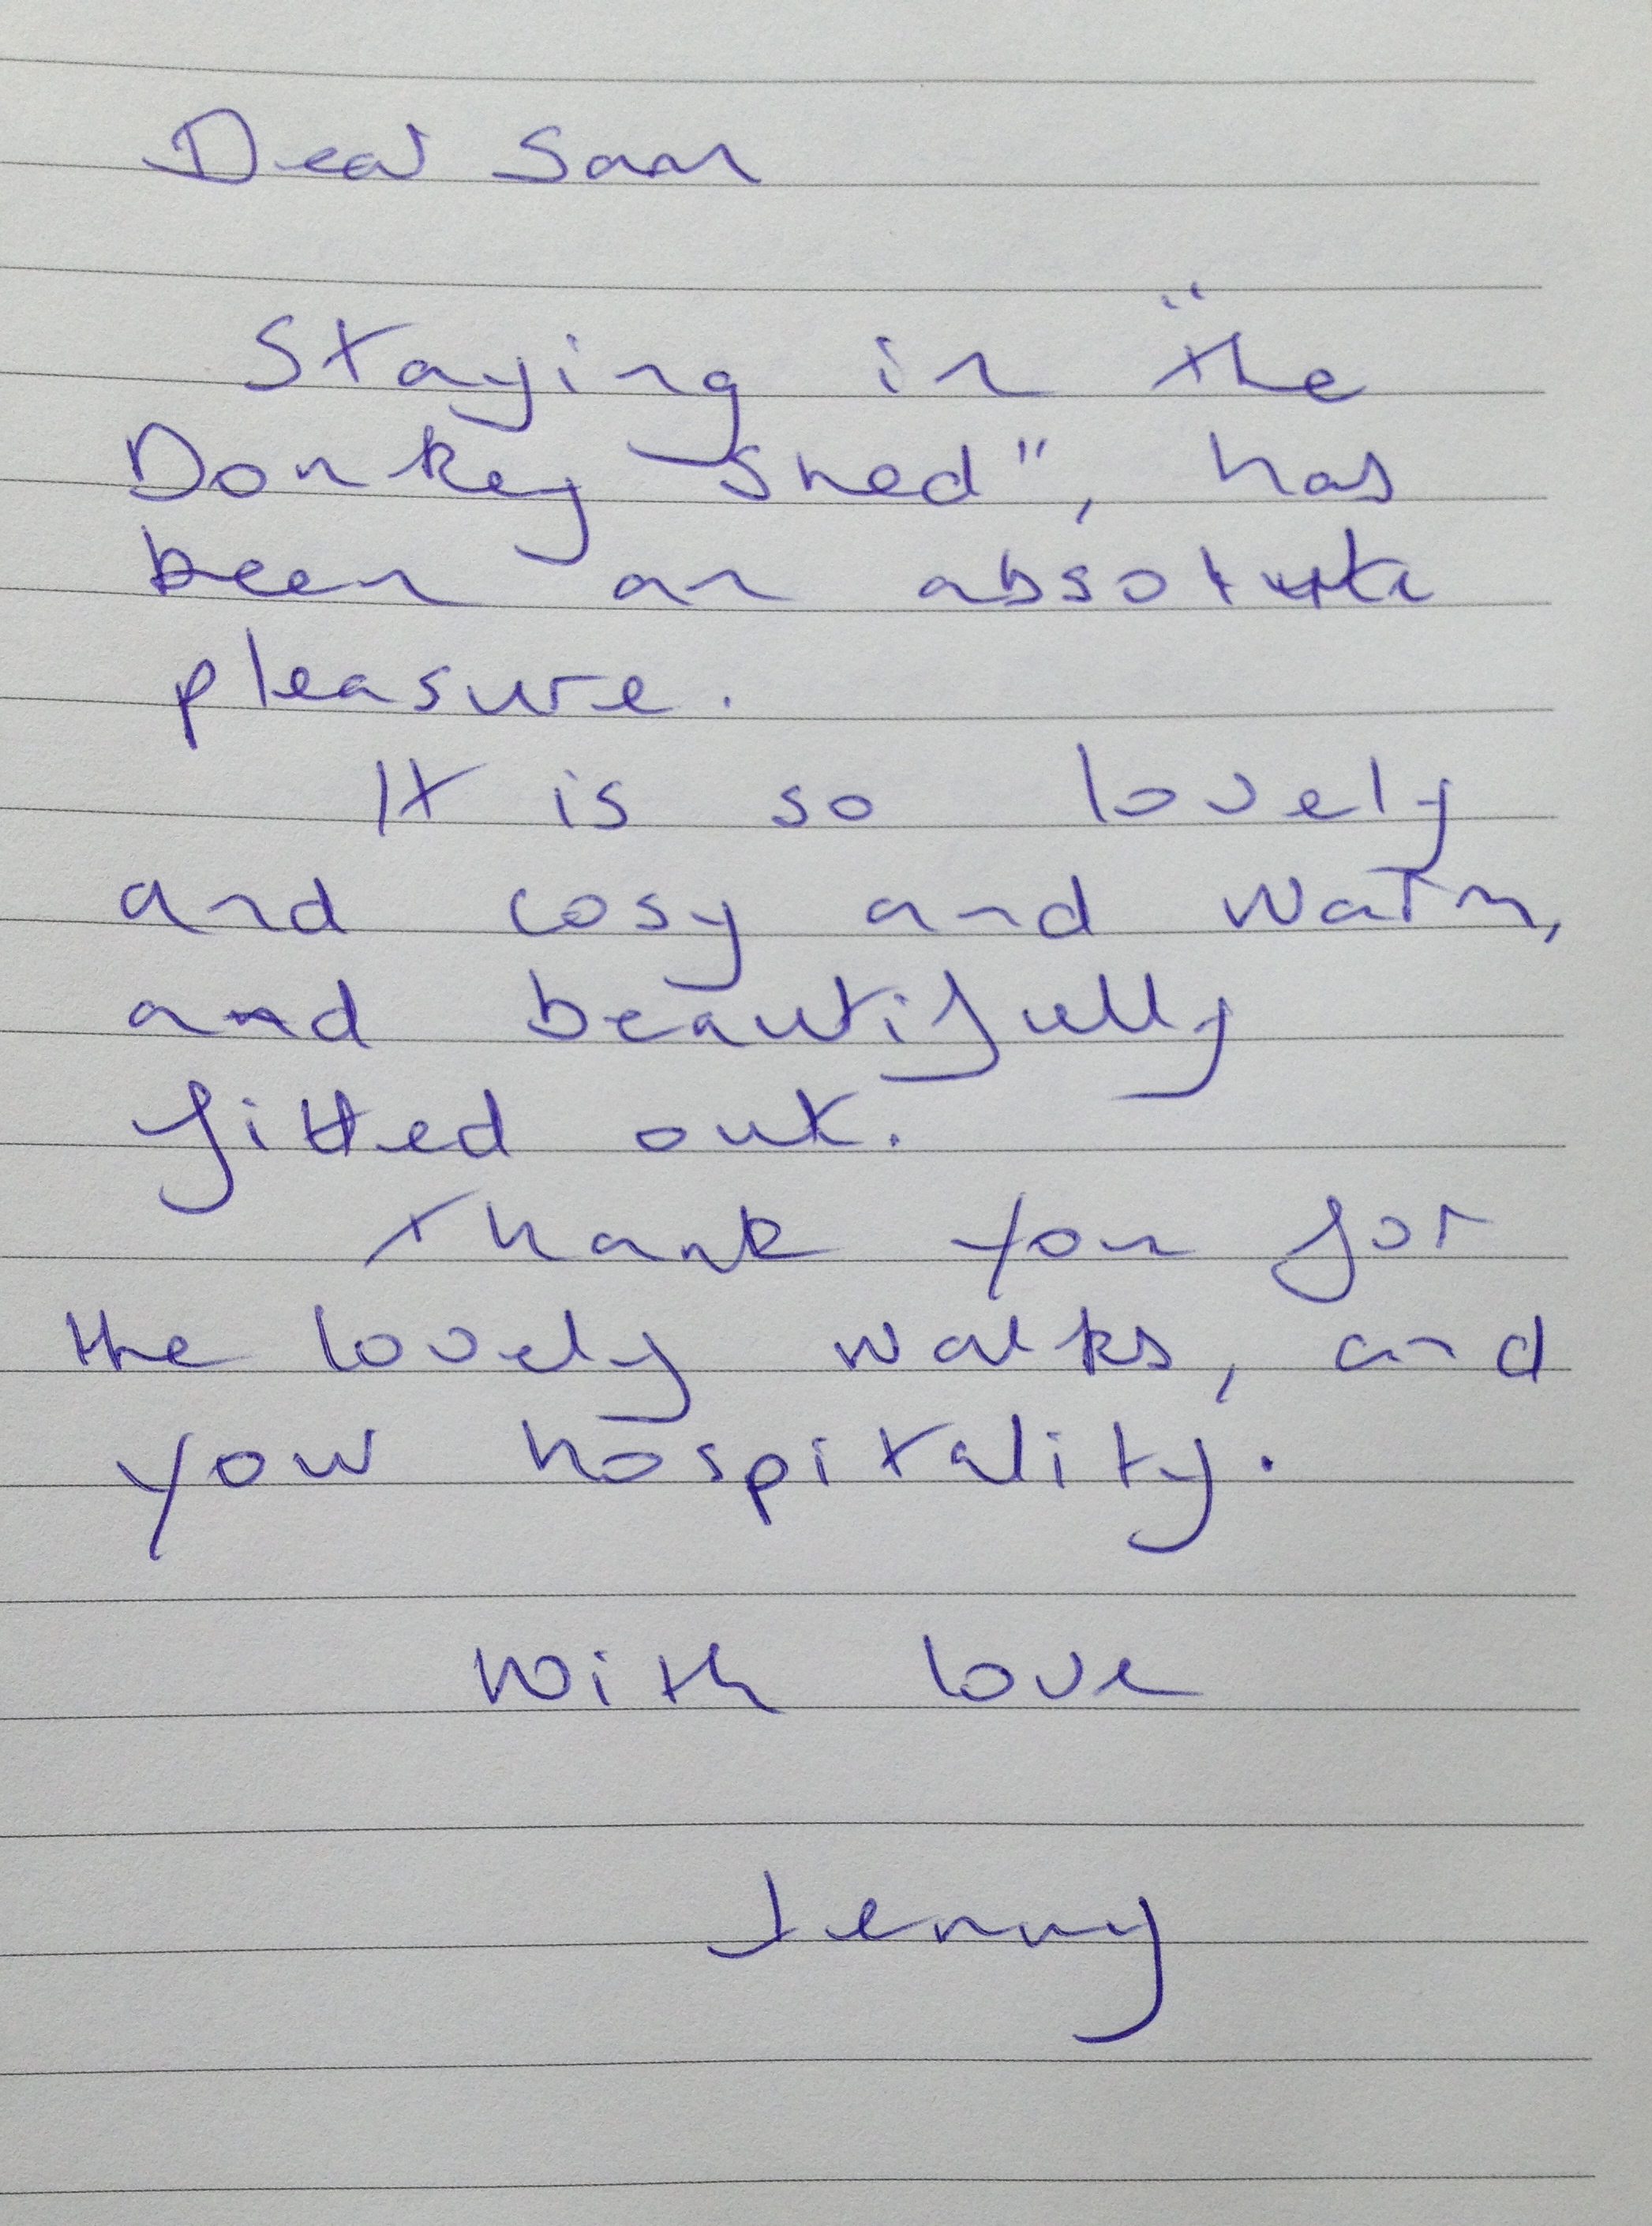 Dear Sam
Staying in "the
Donkey Shed", has
been an absolute
pleasure.
It is so lovely
and cosy and warm,
and beautifully
fitted out.
Thank you for
the lovely walks, and
your hospitality.
With love
Jenny